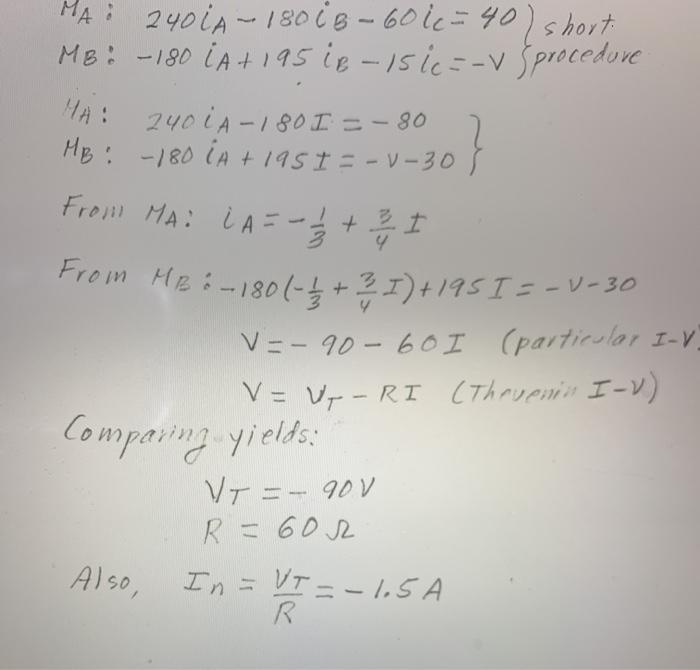 MA: 240iA - 180iB - 60ic = 40 } short
MB: -180 iA + 195 iB - 15ic = -V } procedure
MA: 240iA - 180I = -80
MB: -180 iA + 195I = -V-30 }
From MA: iA = -1/3 + 3/4 I
From MB: -180(-1/3 + 3/4 I) + 195I = -V-30
V = -90 - 60I (particular I-V)
V = VT - RI (Thevenin I-V)
Comparing yields:
VT = -90V
R = 60Ω
Also, In = VT/R = -1.5A